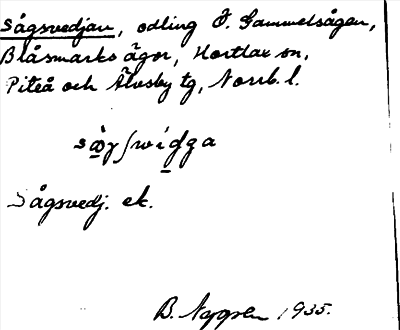 Sågsvedjan, odling Ö. Gammelsågen,
Blåsmarks ägor, Hortlax sn,
Piteå och Älvsby tg, Norrb. l.
Sågsvedj. ek.
B. 1935.